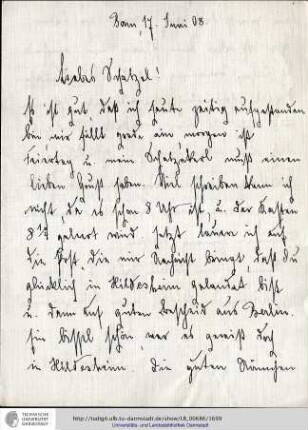 Bonn, 17. Juni 08.
Liebes Schatzel!
Es ist gut, daß ich heute zeitig aufgestanden
bin mir fällt grade ein morgen ist
Feiertag u. mein Schatzekerl muß einen
lieben Gruß haben. Viel schreiben kann ich
nicht, da es schon 8 Uhr ist, u. der Kasten
8¼ geleert wird. Jetzt lauere ich auf
die Post, die mir Nachricht bringt, daß du
glücklich in Hildesheim gelandet bist
u. dann auf guten Bescheid aus Berlin.
Ein bissel schön war es gewiß doch
in Hildesheim. Die guten
TECHNISCHE
UNIVERSITÄT
DARMSTADT
http://tudigit.ulb.tu-darmstadt.de/show/LB_00686/1659
Universitäts- und Landesbibliothek Darmstadt